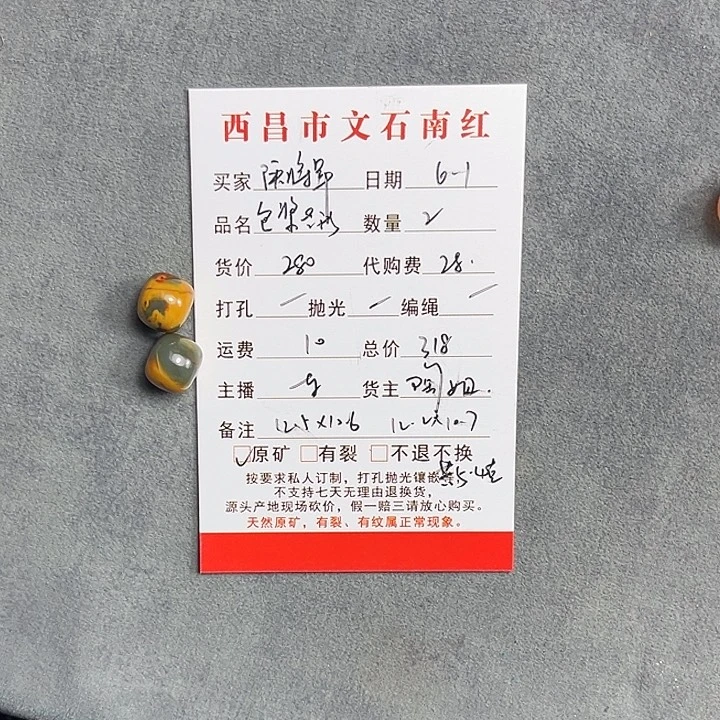 西昌市文石南红
买家 陈 日期 6-1
品名 包浆 数量 2
货价 280 代购费 28.
打孔 — 抛光 — 编绳 —
运费 10 总价 318
主播 货主 陶姐.
备注 12.5×10.6 12. ×10.7
✓原矿 □有裂 □不退不换
共5.4克
按要求私人订制，打孔抛光镶嵌
不支持七天无理由退换货，
源头产地现场砍价，假一赔三请放心购买。
天然原矿，有裂、有纹属正常现象。